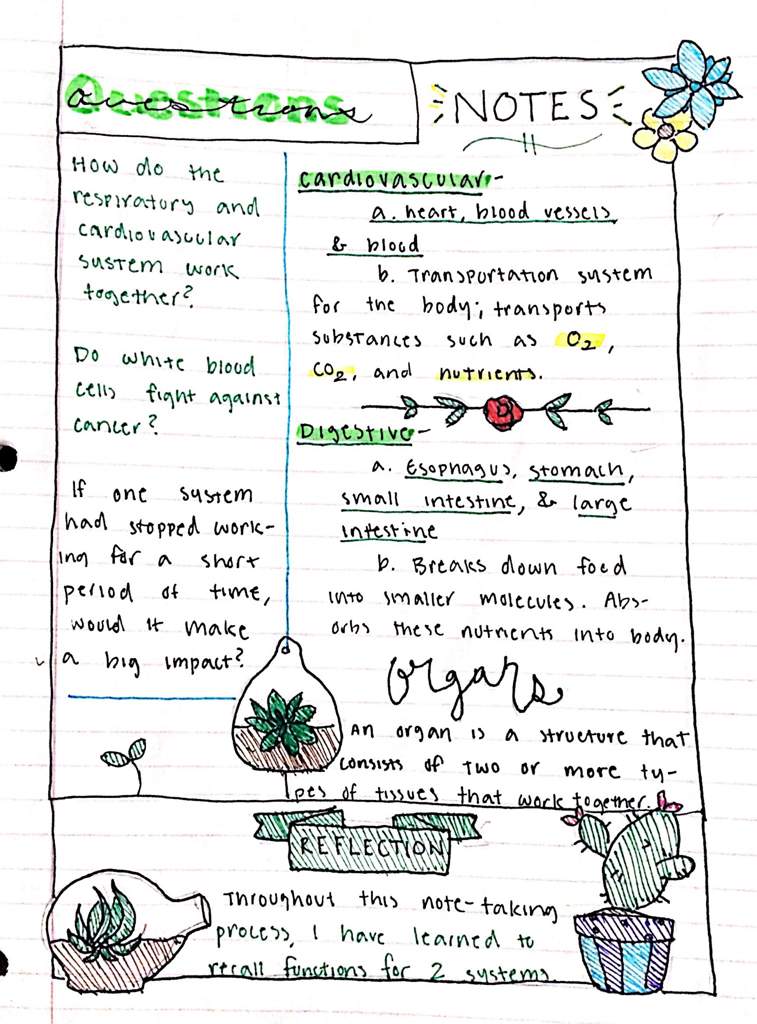 Questions
NOTES
How do the
respiratory and
cardiovascular
system work
together?
Do white blood
cells fight against
cancer?
If one system
had stopped work-
ing for a short
period of time,
would it make
a big impact?
Cardiovascular-
a. heart, blood vessels
& blood
b. Transportation system
for the body; transports
substances such as O₂,
CO₂, and nutrients.
Digestive-
a. Esophagus, stomach,
small intestine, & large
intestine
b. Breaks down food
into smaller molecules. Abs-
orbs these nutrients into body.
Organs
An organ is a structure that
consists of two or more ty-
pes of tissues that work together.
REFLECTION
Throughout this note-taking
process, I have learned to
recall functions for 2 systems.